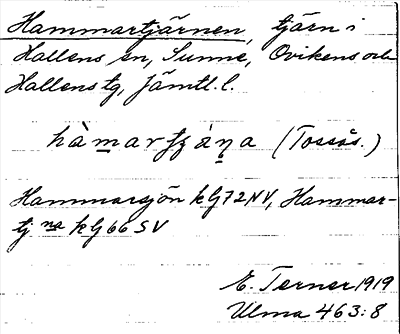 Hammartjärnen, tjärn i
Hallens sn, Sunne, Ovikens och
Hallens tg, Jämtl. l.
hàmarʃʒáṇa (Tossås.)
Hammarsjön kG72NV, Hammar-
tj na kG66SV
E. Terner 1919
Ulma 463:8